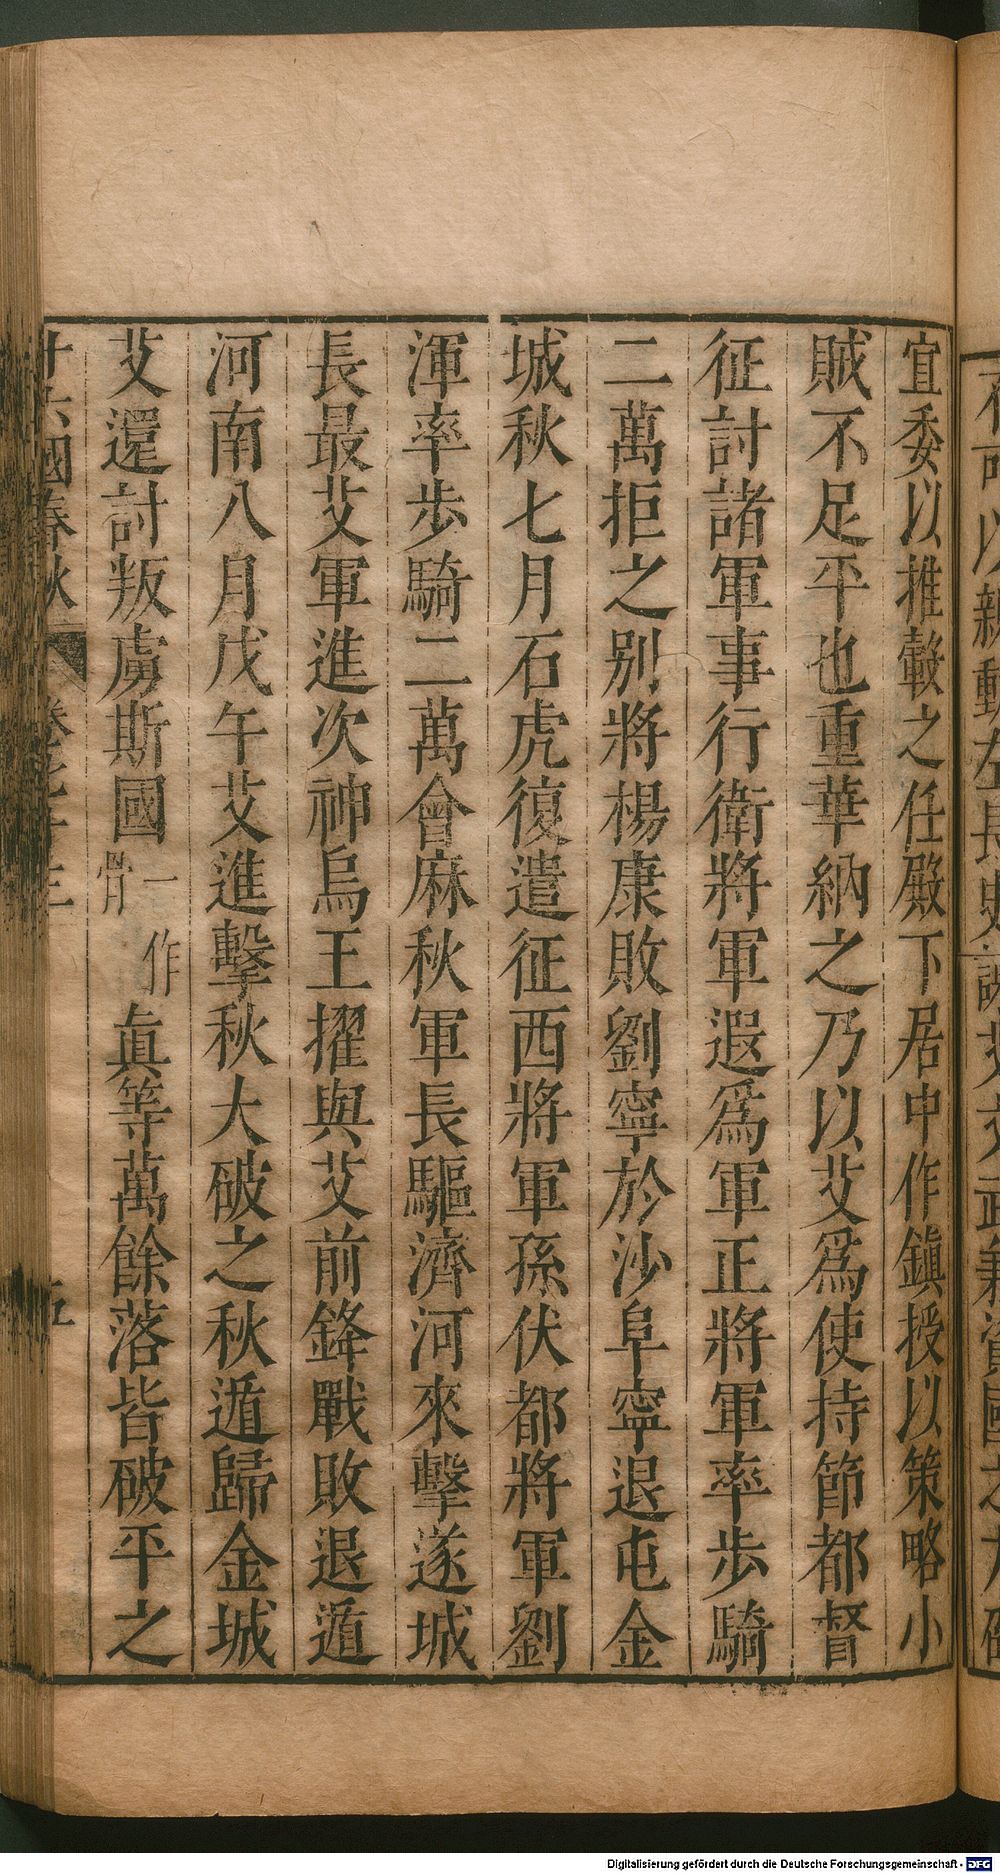 宜委以推轂之任殿下居中作鎮授以策略小
賊不足平也重華納之乃以艾為使持節都督
征討諸軍事行衛將軍遐爲軍正將軍率步騎
二萬拒之別將楊康敗劉寧於沙阜寧退屯金
城秋七月石虎復遣征西將軍孫伏都將軍劉
渾率步騎二萬會麻秋軍長驅濟河來擊遂城
長最艾軍進次神鳥王擢與艾前鋒戰敗退遁
河南八月戊午艾進擊秋大破之秋遁歸金城
艾還討叛虜斯國一作骨真等萬餘落皆破平之
十六國春秋
Digitalisierung gefördert durch die Deutsche Forschungsgemeinschaft - DFG